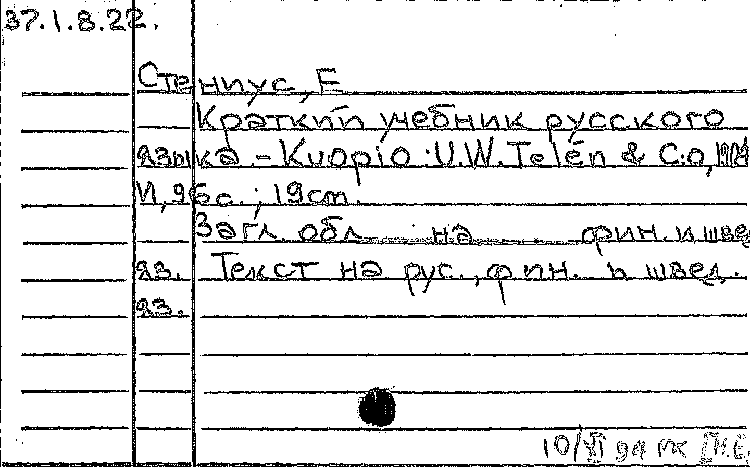 37.1.8.22.
Стениус, Е
Краткий учебник русского
языка. - Kuopio : U.W. Telén & C:o,
VI, 96 с. ; 19 cm.
Загл. обл. на фин. и швед
яз. Текст на рус., фин. и швед.
яз.
10/VI 94 мк